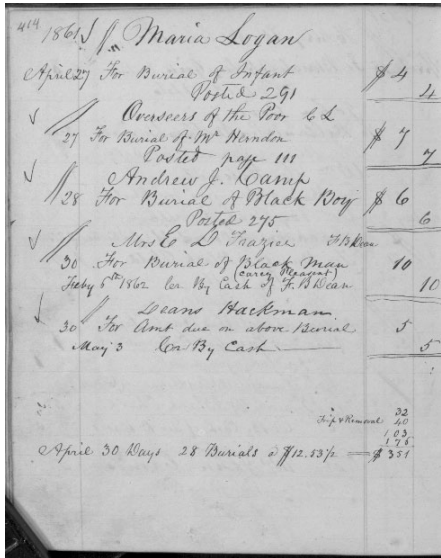 414
1861 Maria Logan
April 27 For Burial of Infant $4
Posted 291 4
Overseers of the Poor C L
27 For Burial of Mr Herndon $7
Posted page 111 7
Andrew J. Camp
28 For Burial of Black Boy $6
Posted 275 6
Mrs E D Frazier F B Dean
30 For Burial of Black Man 10
(Carey Pleasant)
Feby 6th 1862 Cr By Cash of F. B Dean 10
Deans Hackman
30 For Amt due on above Burial 5
May 3 Cr By Cash 5
32
& Removal 40
103
176
April 30 Days 28 Burials a $12.53½ = $351